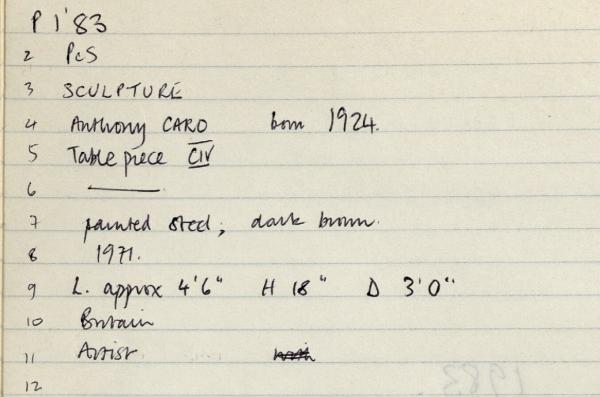 P 1'83
2 PcS
3 SCULPTURE
4 Anthony CARO born 1924.
5 Table piece CIV
6
7 painted steel; dark brown.
8 1971.
9 L. approx 4'6" H 18" D 3'0"
10 Britain
11 Artist
12
1983